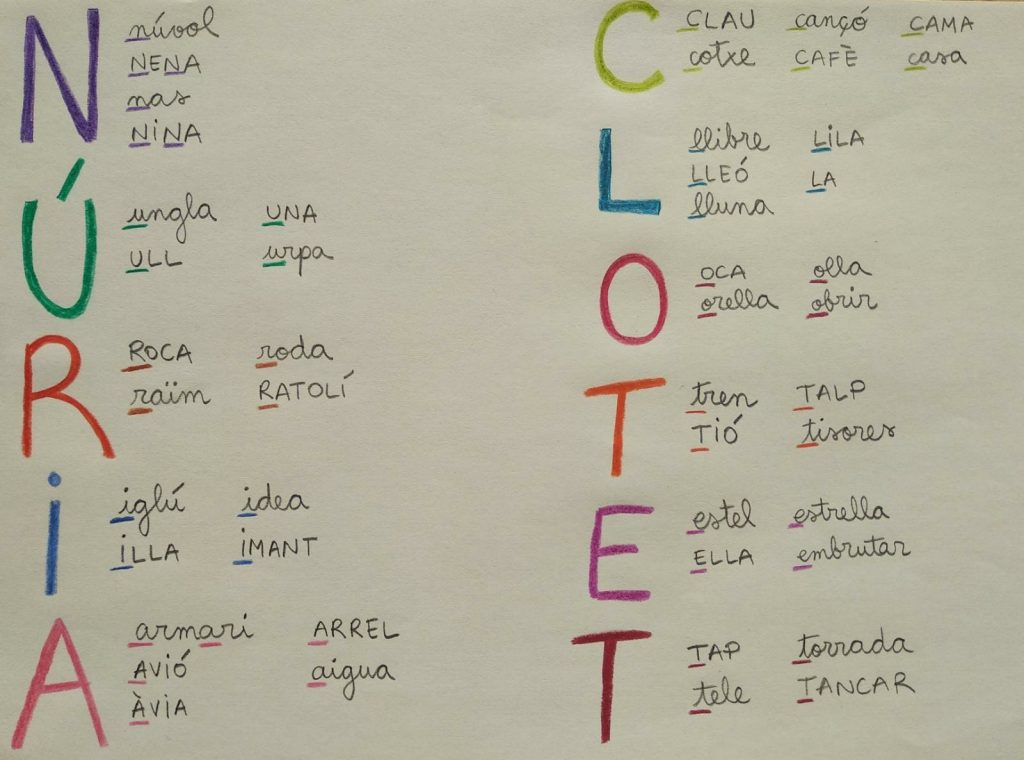 N
núvol
NENA
nas
NiNA
Ú
ungla UNA
ULL urpa
R
ROCA roda
raïm RATOLÍ
i
iglú idea
iLLA iMANT
A
armari ARREL
AViÓ aigua
ÀViA
C
CLAU cançó CAMA
cotxe CAFÈ casa
L
llibre LiLA
LLEÓ LA
lluna
O
OCA olla
orella obrir
T
tren TALP
TiÓ tisores
E
estel estrella
ELLA embrutar
T
TAP torrada
tele TANCAR